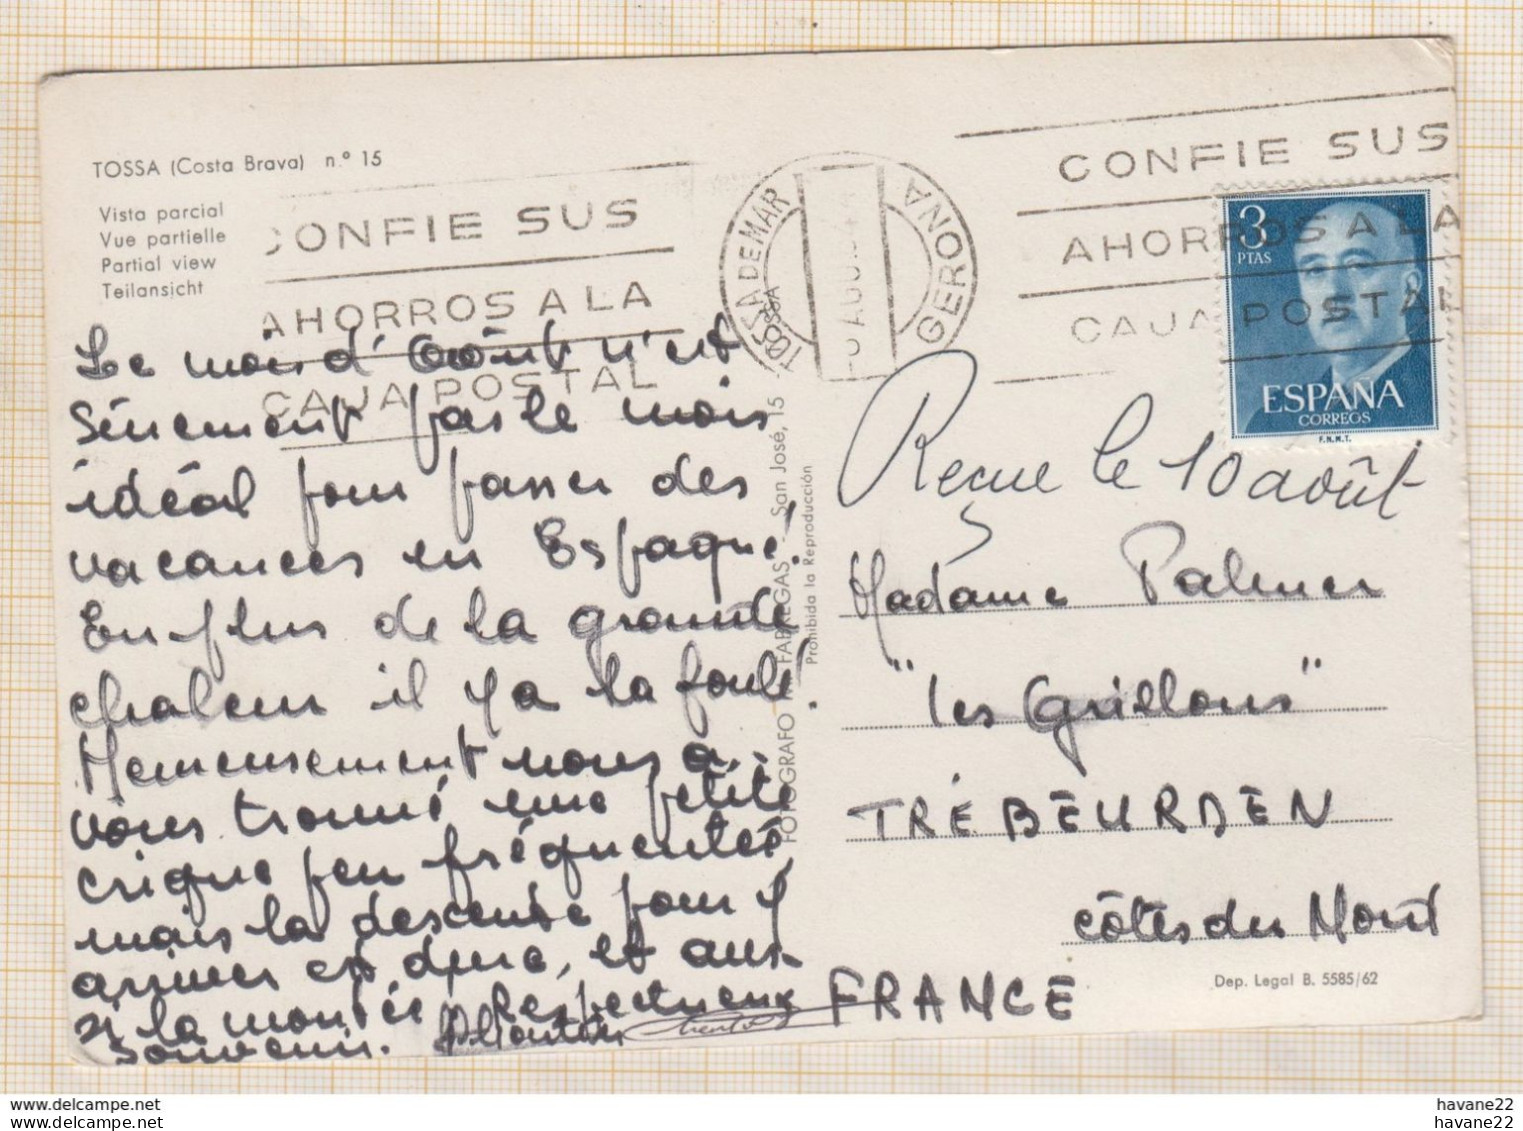 TOSSA (Costa Brava) n.º 15
Vista parcial
Vue partielle
Partial view
Teilansicht
CONFIE SUS
AHORROS A LA
CAJA POSTAL
TOSSA DE MAR
GERONA
CONFIE SUS
AHORROS A LA
CAJA POSTAL
3
PTAS
ESPAÑA
CORREOS
F.N.M.T.
Le mois d'Août n'est
sûrement pas le mois
idéal pour passer des
vacances en Espagne!
En plus de la grande
chaleur il y a la foule!
Heureusement nous a-
vons trouvé une petite
crique peu fréquentée,
mais la descente pour y
arriver est dure, et aus-
si la montée Respectueux
souvenir.
FOTOGRAFO FABREGAS - San José, 15 - TOSSA
Prohibida la Reproducción
Reçue le 10 août
Madame Palmer
"Les Grillons"
TRÉBEURDEN
Côtes du Nord
FRANCE
Dep. Legal B. 5585/62
havane22
havane22
havane22
havane22